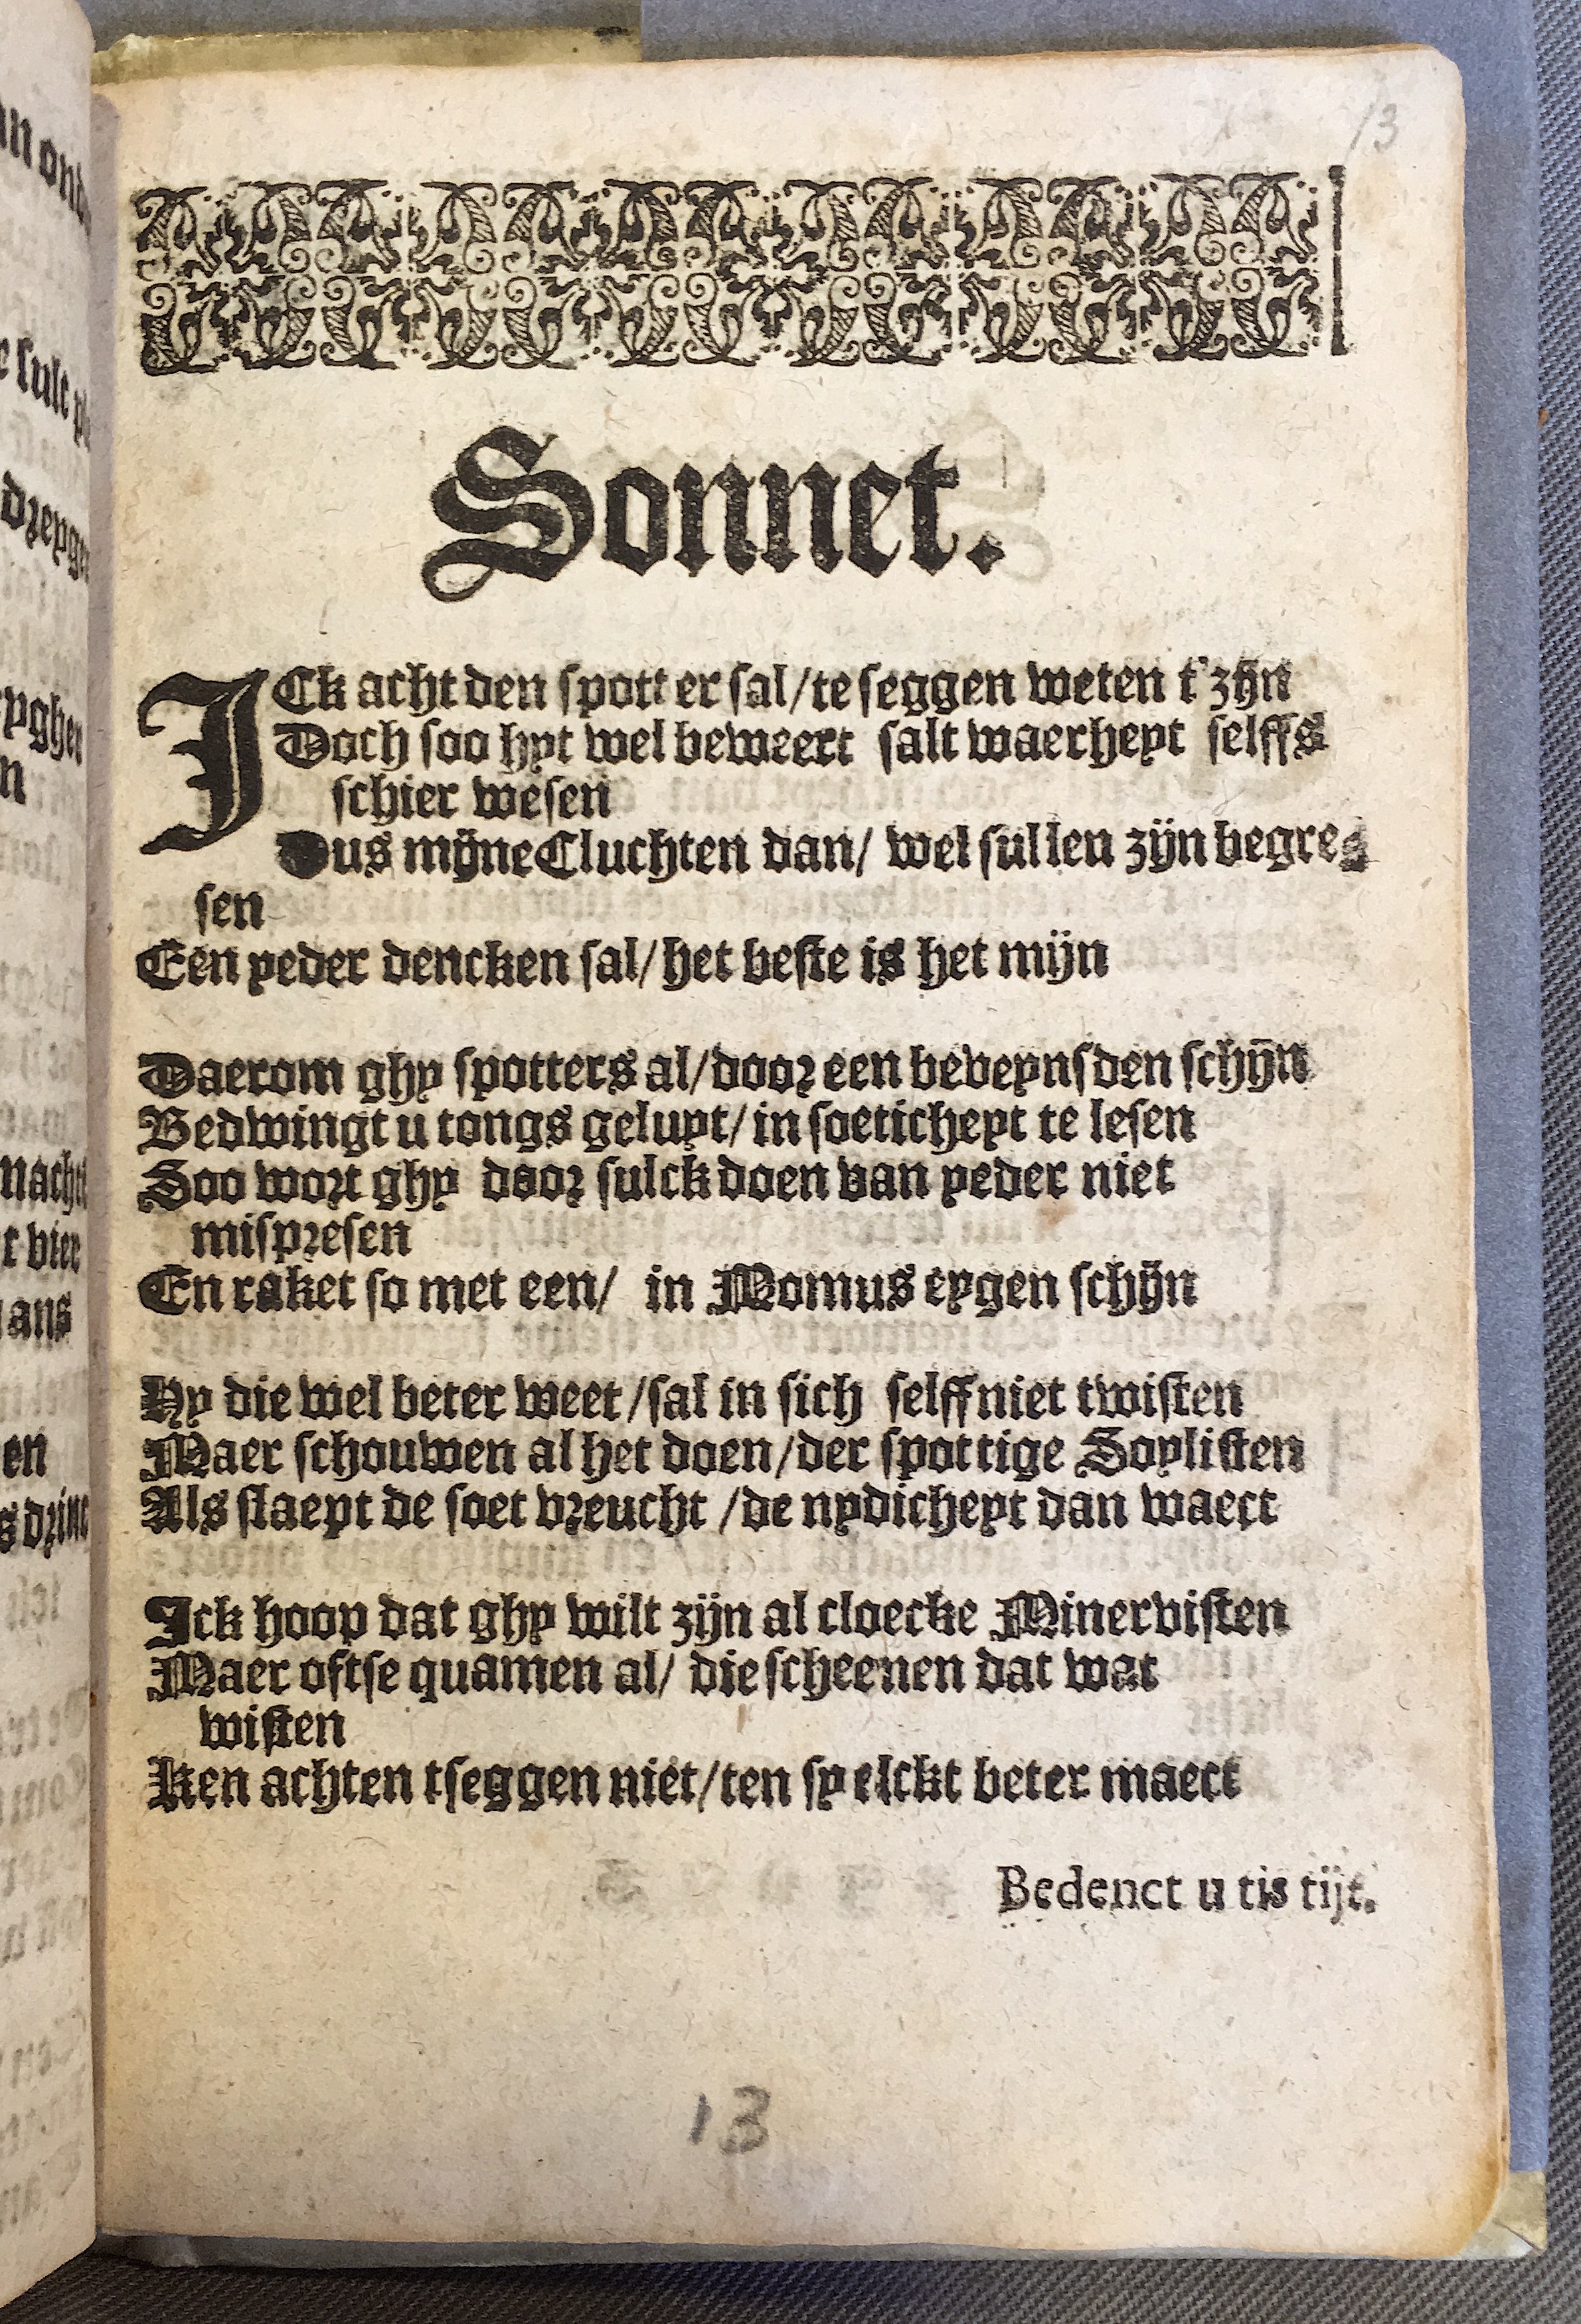 13
Sonnet.
ICk acht den spott er sal/te seggen weten t'zijn
Doch soo hyt wel beweert salt waerheyt selffs
schier wesen
Dus mijne Cluchten dan/ wel sullen zijn begre
sen
Een yeder dencken sal/het beste is het mijn
Daerom ghy spotters al/door een beveynsden schijn
Bedwingt u tongs geluyt/in soeticheyt te lesen
Soo wort ghy door sulck doen van yeder niet
mispresen
En raket so met een/ in Momus eygen schijn
Hy die wel beter weet/sal in sich selff niet twisten
Maer schouwen al het doen/der spottige Soylisten
Als slaept de soet vreucht /de nydicheyt dan waect
Ick hoop dat ghy wilt zijn al cloecke Minervisten
Maer oftse quamen al/ die scheenen dat wat
wisten
Ken achten tseggen niet/ten sy elckt beter maect
Bedenct u tis tijt.
13